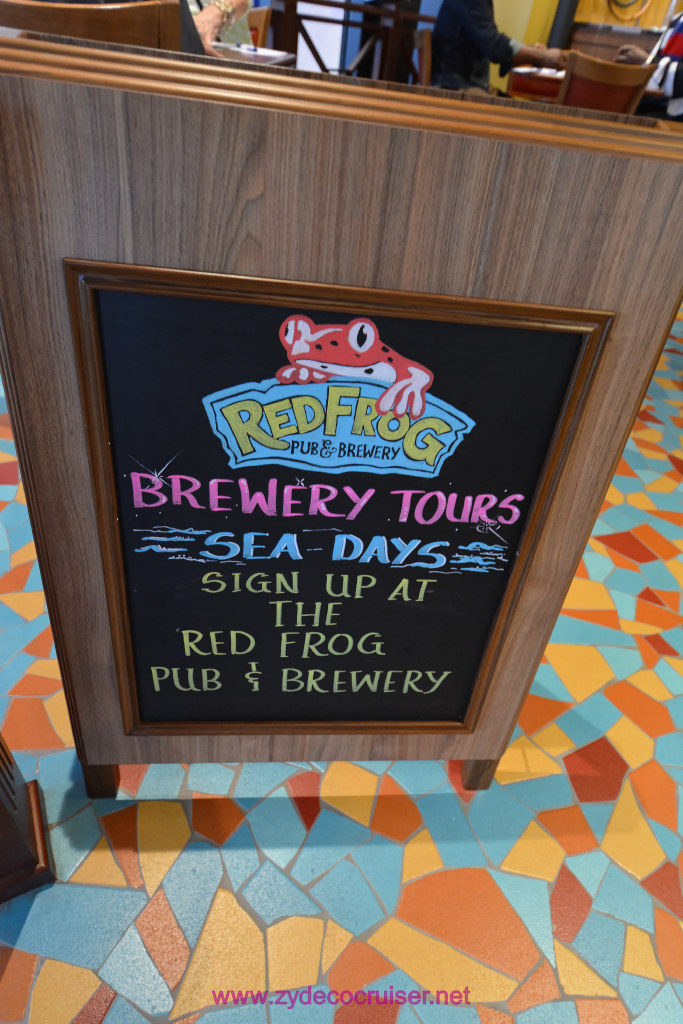 RED FROG
PUB & BREWERY
BREWERY TOURS
SEA DAYS
SIGN UP AT
THE
RED FROG
PUB & BREWERY
www.zydecocruiser.net